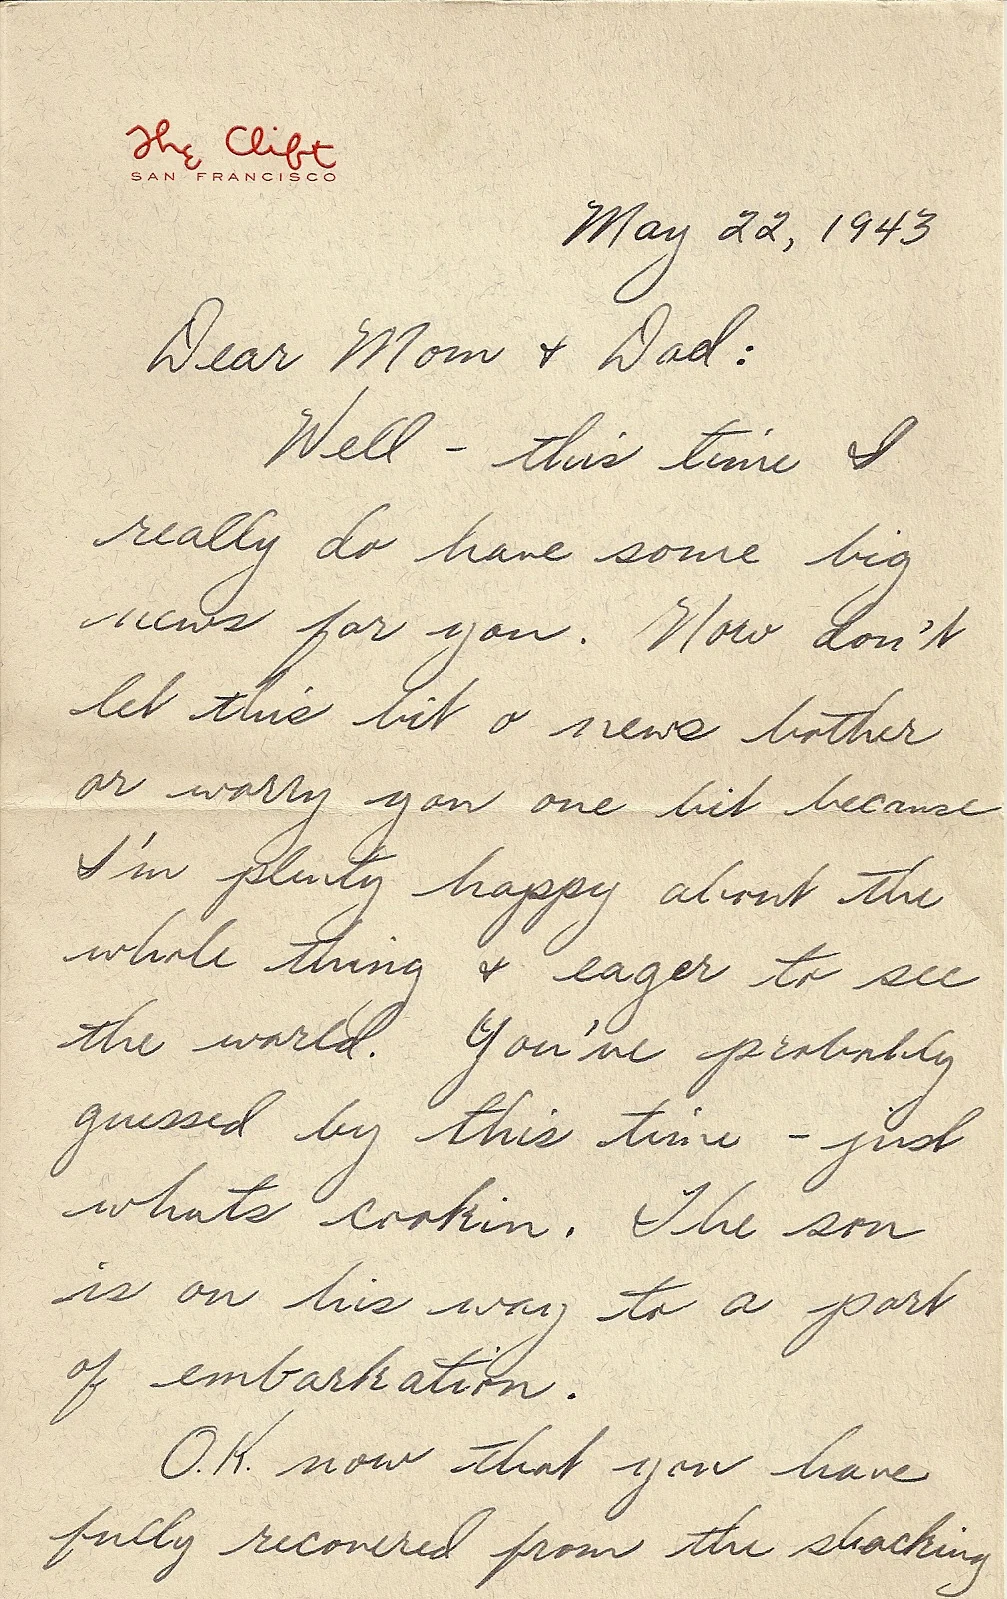 The Clift
SAN FRANCISCO
May 22, 1943
Dear Mom & Dad:
Well - this time I
really do have some big
news for you. Now don't
let this bit o news bother
or worry you one bit because
I'm plenty happy about the
whole thing & eager to see
the world. You've probably
guessed by this time - just
whats cookin. The son
is on his way to a port
of embarkation.
O.K. now that you have
fully recovered from the shocking